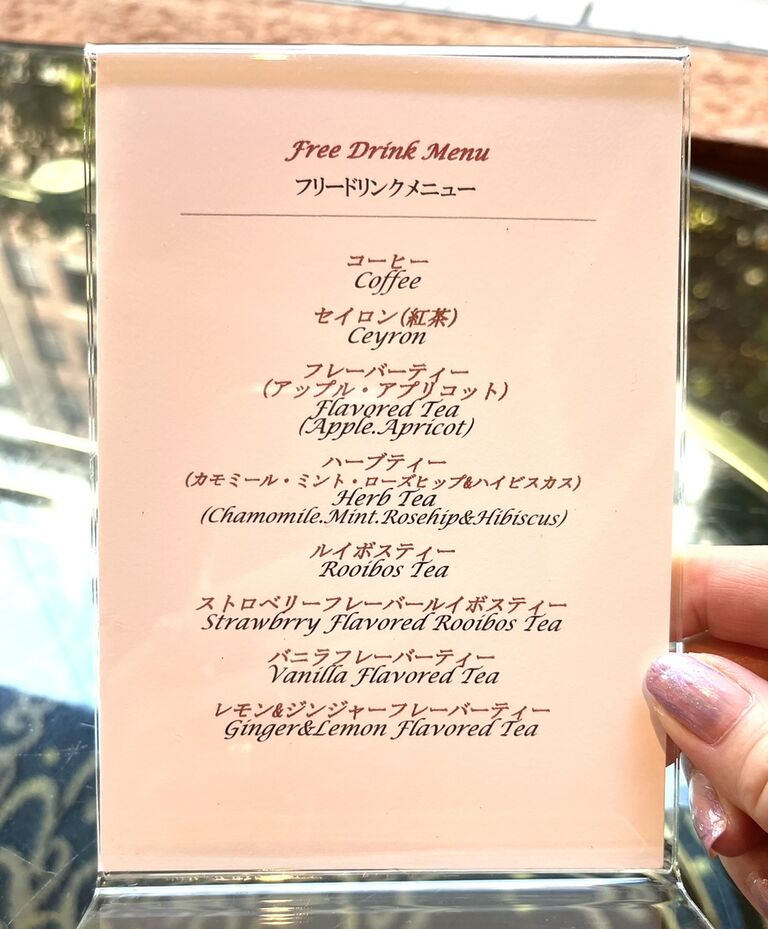 Free Drink Menu
フリードリンクメニュー
コーヒー
Coffee
セイロン(紅茶)
Ceyron
フレーバーティー
(アップル・アプリコット)
Flavored Tea
(Apple.Apricot)
ハーブティー
(カモミール・ミント・ローズヒップ&ハイビスカス)
Herb Tea
(Chamomile.Mint.Rosehip&Hibiscus)
ルイボスティー
Rooibos Tea
ストロベリーフレーバールイボスティー
Strawbrry Flavored Rooibos Tea
バニラフレーバーティー
Vanilla Flavored Tea
レモン&ジンジャーフレーバーティー
Ginger&Lemon Flavored Tea